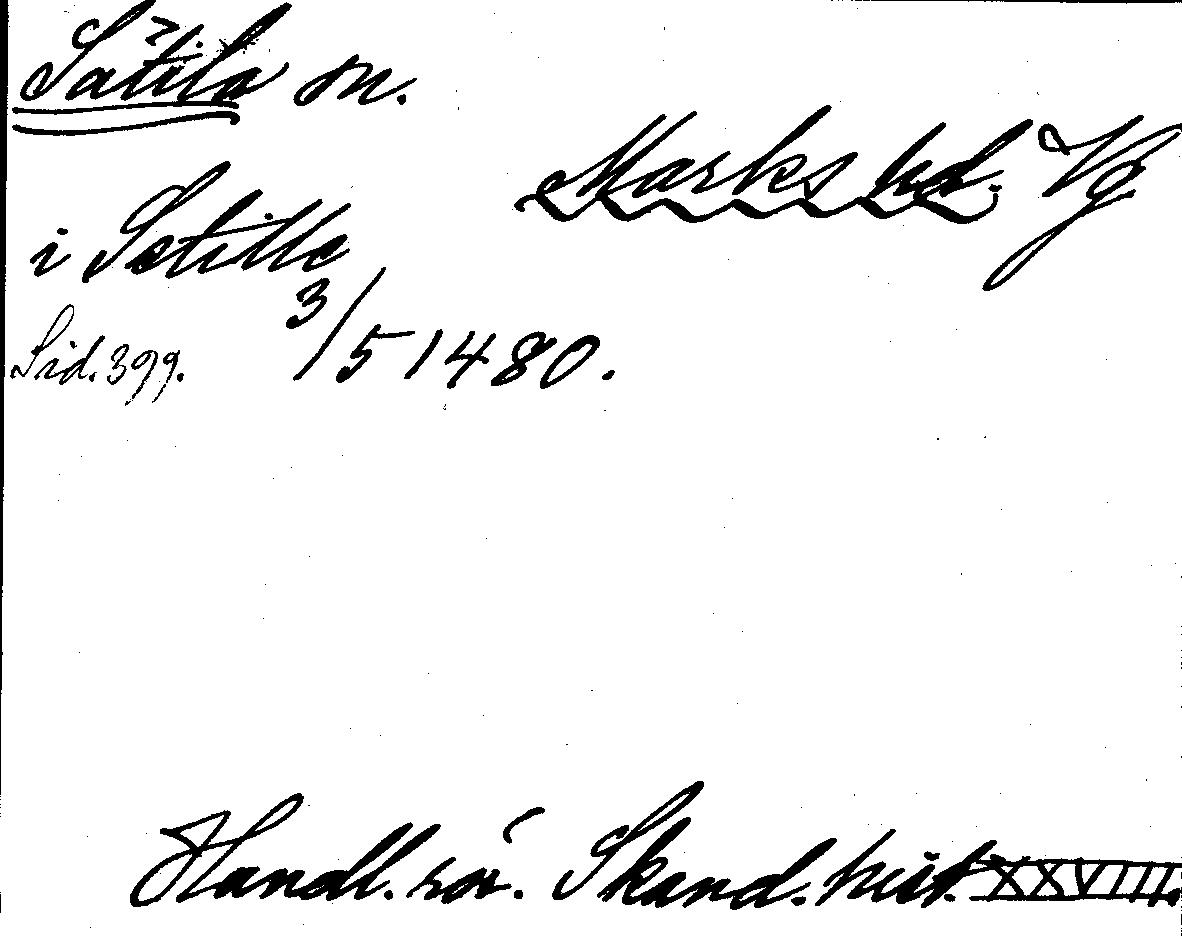 Sätila sn.
Marks hd. Vg
i Setilla
3/5 1480.
Sid. 399.
Handl. rör. Skand. hist. XXVIII.